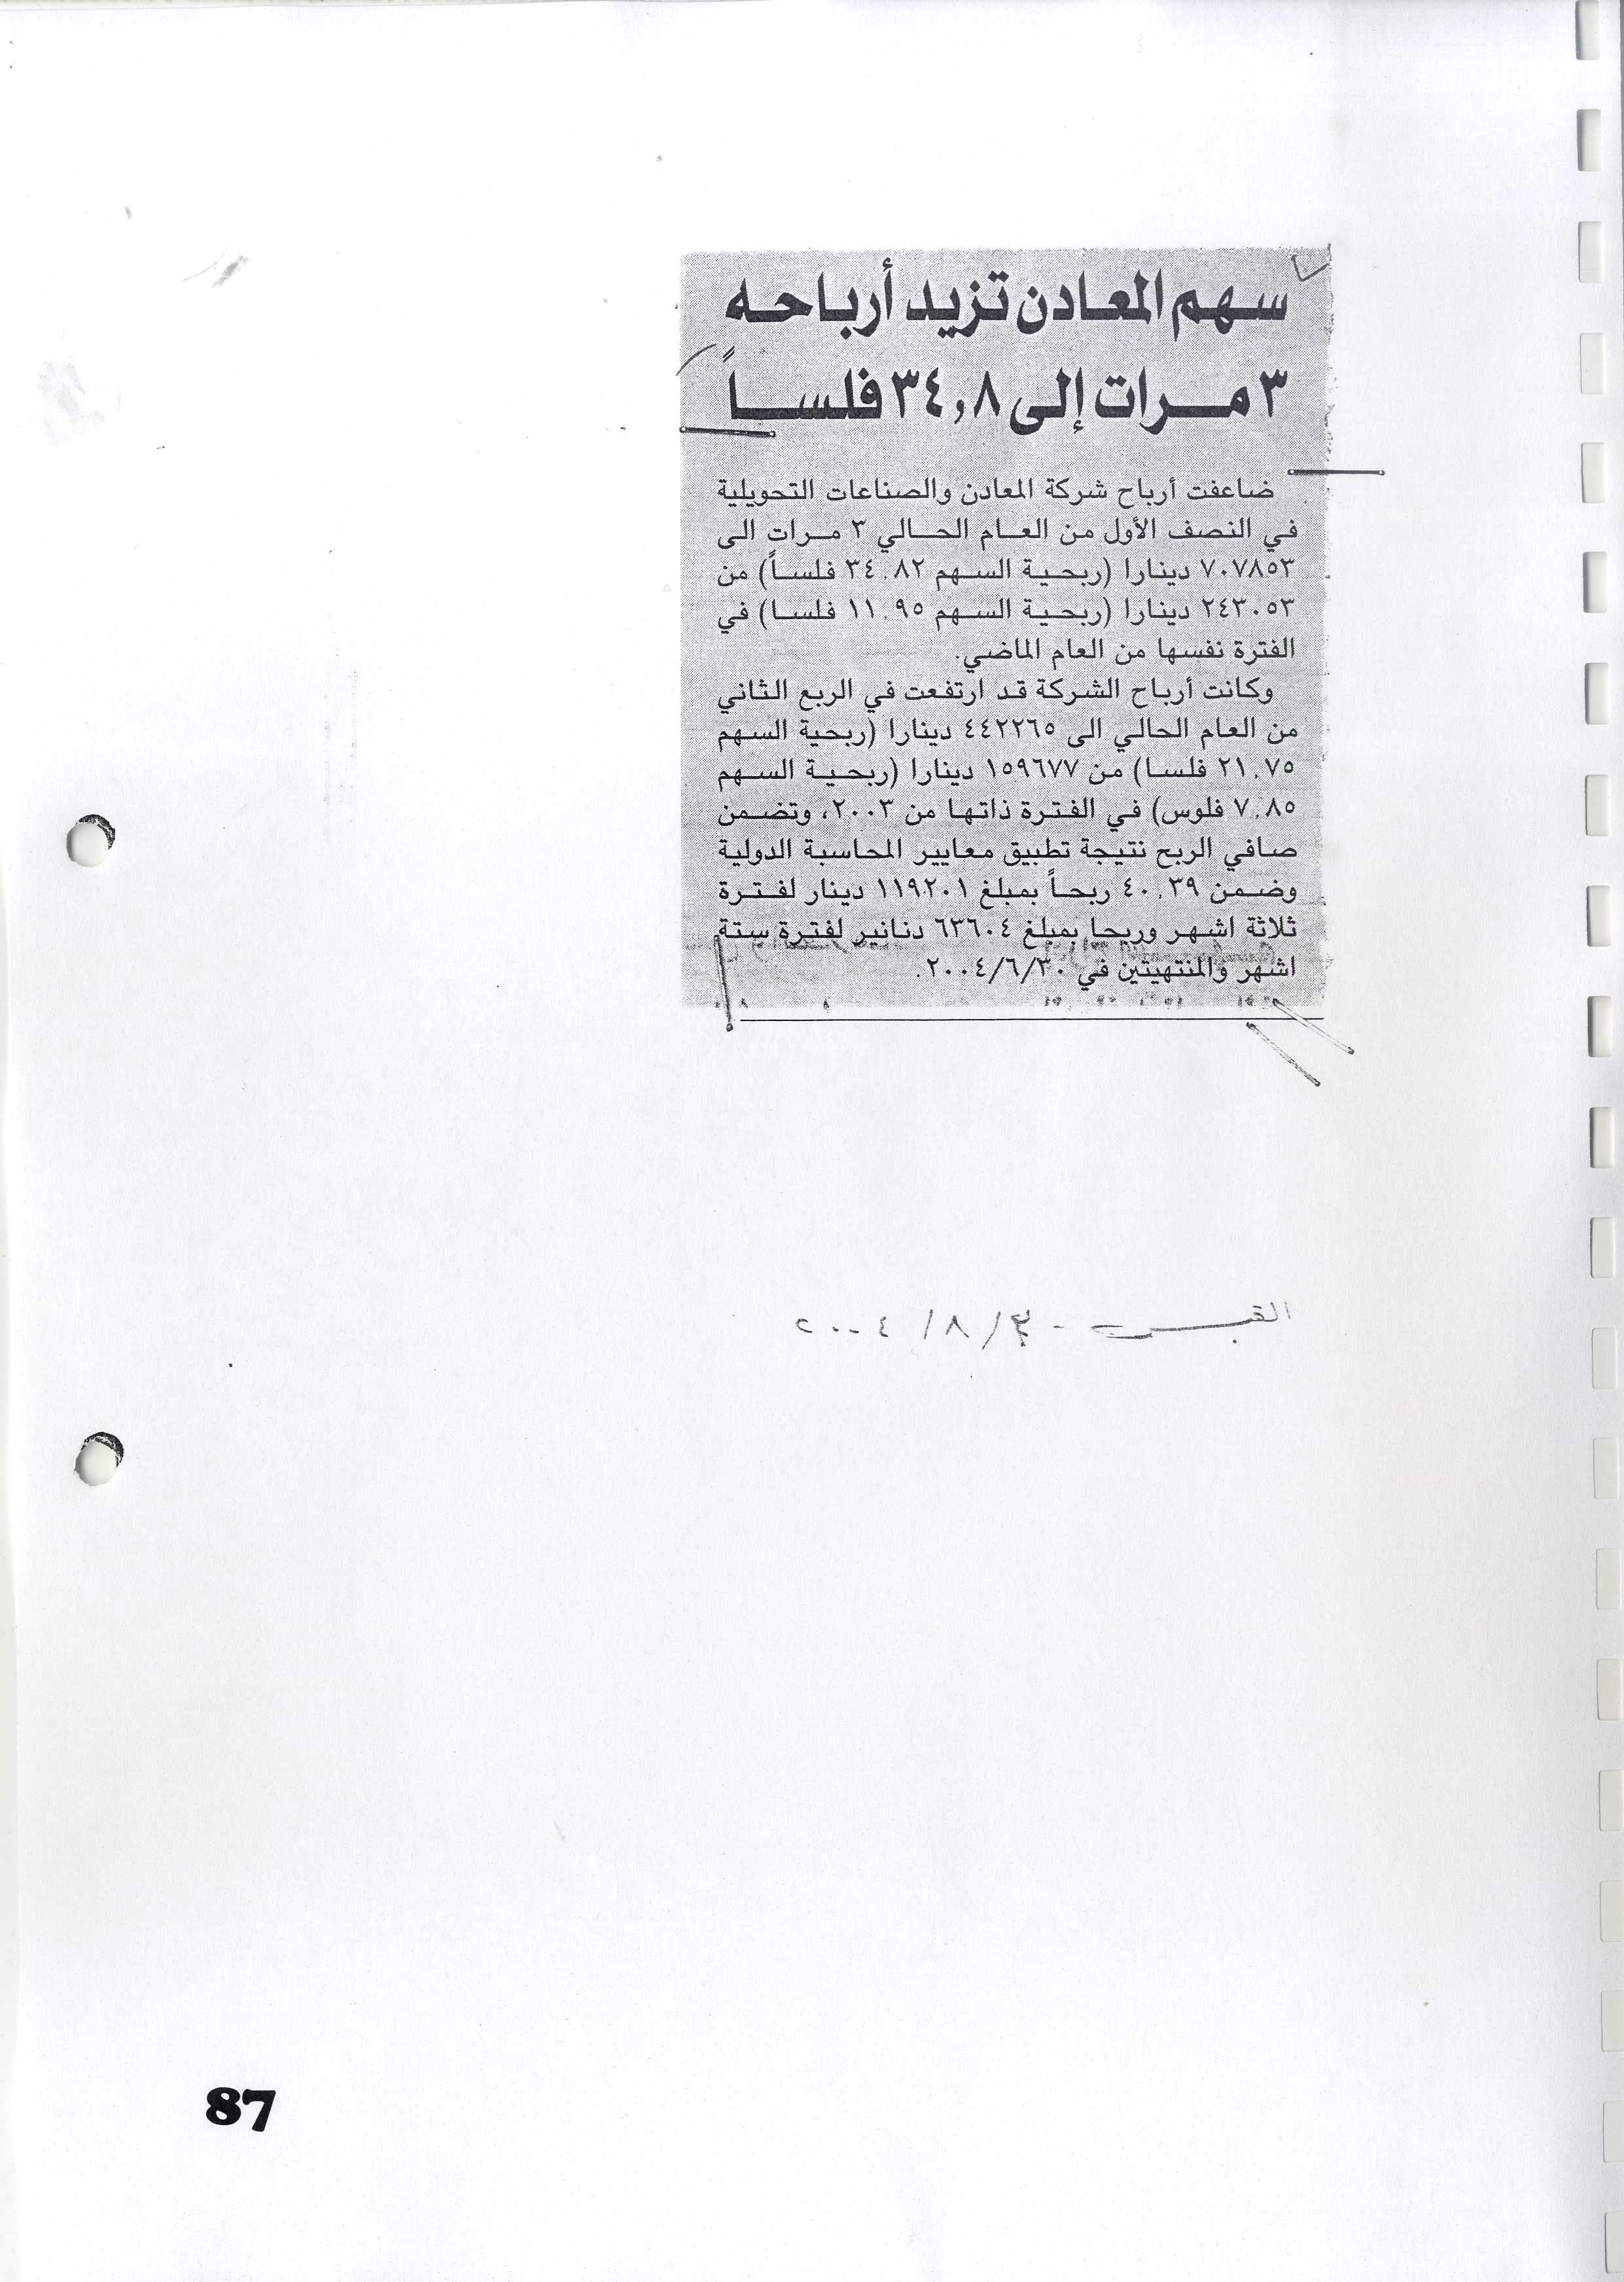 سهم المعادن تزيد أرباحه
٣ مرات إلى ٣٤,٨ فلساً
ضاعفت أرباح شركة المعادن والصناعات التحويلية
في النصف الأول من العام الحالي ٣ مرات الى
٧٠٧٨٥٣ دينارا (ربحية السهم ٣٤.٨٢ فلساً) من
٢٤٣٠٥٣ دينارا (ربحية السهم ١١.٩٥ فلسا) في
الفترة نفسها من العام الماضي.
وكانت أرباح الشركة قد ارتفعت في الربع الثاني
من العام الحالي الى ٤٤٢٢٦٥ دينارا (ربحية السهم
٢١.٧٥ فلسا) من ١٥٩٦٧٧ دينارا (ربحية السهم
٧.٨٥ فلوس) في الفترة ذاتها من ٢٠٠٣، وتضمن
صافي الربح نتيجة تطبيق معايير المحاسبة الدولية
وضمن ٤٠.٣٩ ربحاً بمبلغ ١١٩٢٠١ دينار لفترة
ثلاثة اشهر وربحا بمبلغ ٦٣٦٠٤ دنانير لفترة ستة
اشهر والمنتهيتين في ٢٠٠٤/٦/٣٠.
القبس - ٣/ ٨/ ٢٠٠٤
87